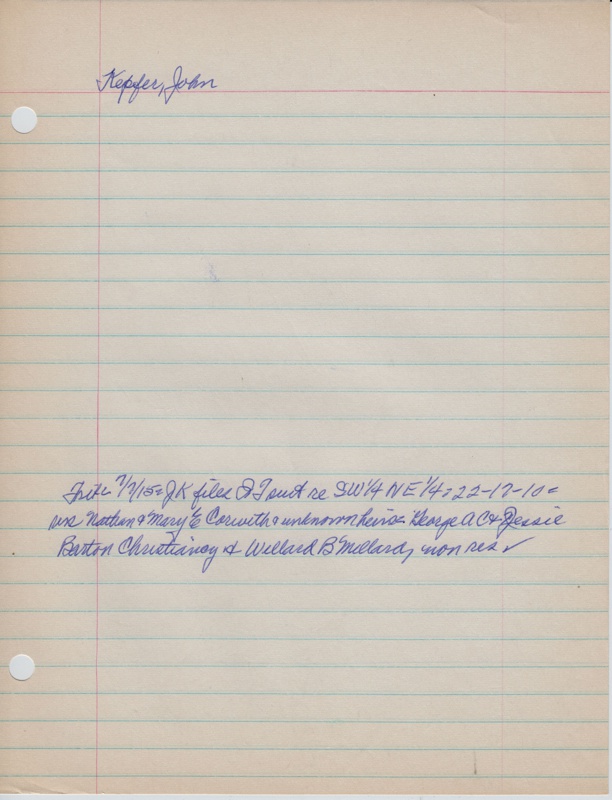 Kepfer, John
Trib 7/7/15= JK files QT suit re SW 1/4 NE 1/4= 22-17-10=
vs= Nathan & Mary E Corwith & unknown heirs= George A C & Jessie
Barton Christiancy & Willard B Millard, non res ✓